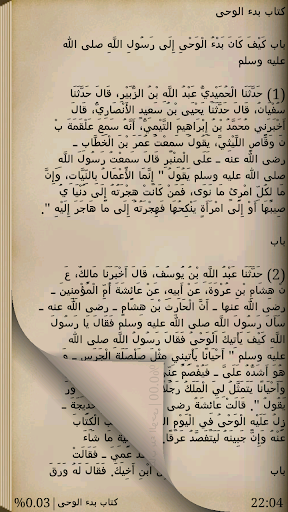 كتاب بدء الوحى
باب كَيْفَ كَانَ بَدْءُ الْوَحْىِ إِلَى رَسُولِ اللَّهِ صلى الله
عليه وسلم
(1) حَدَّثَنَا الْحُمَيْدِيُّ عَبْدُ اللَّهِ بْنُ الزُّبَيْرِ، قَالَ حَدَّثَنَا
سُفْيَانُ، قَالَ حَدَّثَنَا يَحْيَى بْنُ سَعِيدٍ الأَنْصَارِيُّ، قَالَ
أَخْبَرَنِي مُحَمَّدُ بْنُ إِبْرَاهِيمَ التَّيْمِيُّ، أَنَّهُ سَمِعَ عَلْقَمَةَ بْ
نَ وَقَّاصٍ اللَّيْثِيَّ، يَقُولُ سَمِعْتُ عُمَرَ بْنَ الْخَطَّابِ ـ
رضى الله عنه ـ عَلَى الْمِنْبَرِ قَالَ سَمِعْتُ رَسُولَ اللَّهِ
صلى الله عليه وسلم يَقُولُ " إِنَّمَا الأَعْمَالُ بِالنِّيَّاتِ، وَإِنَّ
مَا لِكُلِّ امْرِئٍ مَا نَوَى، فَمَنْ كَانَتْ هِجْرَتُهُ إِلَى دُنْيَا يُ
صِيبُهَا أَوْ إِلَى امْرَأَةٍ يَنْكِحُهَا فَهِجْرَتُهُ إِلَى مَا هَاجَرَ إِلَيْهِ ".
باب
(2) حَدَّثَنَا عَبْدُ اللَّهِ بْنُ يُوسُفَ، قَالَ أَخْبَرَنَا مَالِكٌ، عَ
نْ هِشَامِ بْنِ عُرْوَةَ، عَنْ أَبِيهِ، عَنْ عَائِشَةَ أُمِّ الْمُؤْمِنِينَ ـ
رضى الله عنها ـ أَنَّ الْحَارِثَ بْنَ هِشَامٍ ـ رضى الله عنه ـ
سَأَلَ رَسُولَ اللَّهِ صلى الله عليه وسلم فَقَالَ يَا رَسُولَ
اللَّهِ كَيْفَ يَأْتِيكَ الْوَحْىُ فَقَالَ رَسُولُ اللَّهِ صلى الله
عليه وسلم " أَحْيَانًا يَأْتِينِي مِثْلَ صَلْصَلَةِ الْجَرَسِ ـ وَ
هُوَ أَشَدُّهُ عَلَىَّ ـ فَيُفْصَمُ
وَأَحْيَانًا يَتَمَثَّلُ لِيَ الْمَلَكُ رَجُلاً
يَقُولُ ". قَالَتْ عَائِشَةُ رضى
زِلُ عَلَيْهِ الْوَحْىُ فِي الْيَوْمِ
عَنْهُ وَإِنَّ جَبِينَهُ لَيَتَفَصَّدُ عَرَقًا
باب
خديجة ـ
الْكِتَابَ
مَا شَاءَ
عَمِيَ ـ فَقَالَتْ
ابْنِ أَخِيكَ. فَقَالَ لَهُ وَرَقَ
%0.03 | كتاب بدء الوحى
22:04